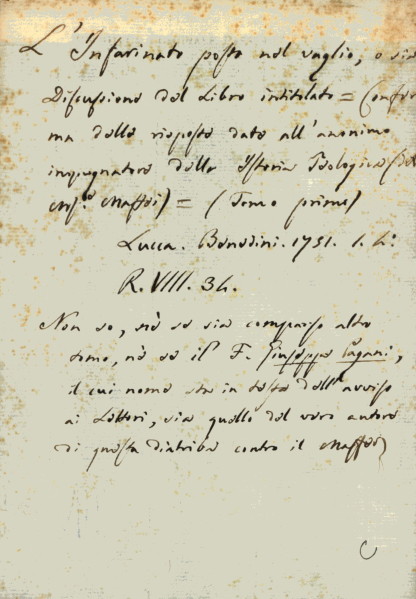 L'Infarinato posto nel vaglio, o sia
Discussione del Libro intitolato = Confer
ma della risposta data all'anonimo
impugnatore della Istoria Teologica (del
Maffei) = (Tomo primo)
Lucca. Benedini. 1751. 1. 4:
R. VIII. 34.
Non so, nè se sia comparso altro
tomo, nè se il F. Giuseppe Pagani,
il cui nome sta in testa dell'avviso
ai Lettori, sia quello del vero autore
di questa diatriba contro il Maffei